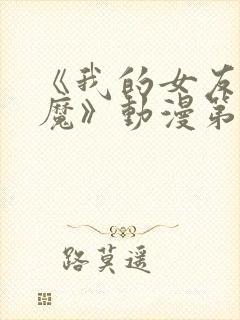 《我的女友
魔》動漫第
路莫遥